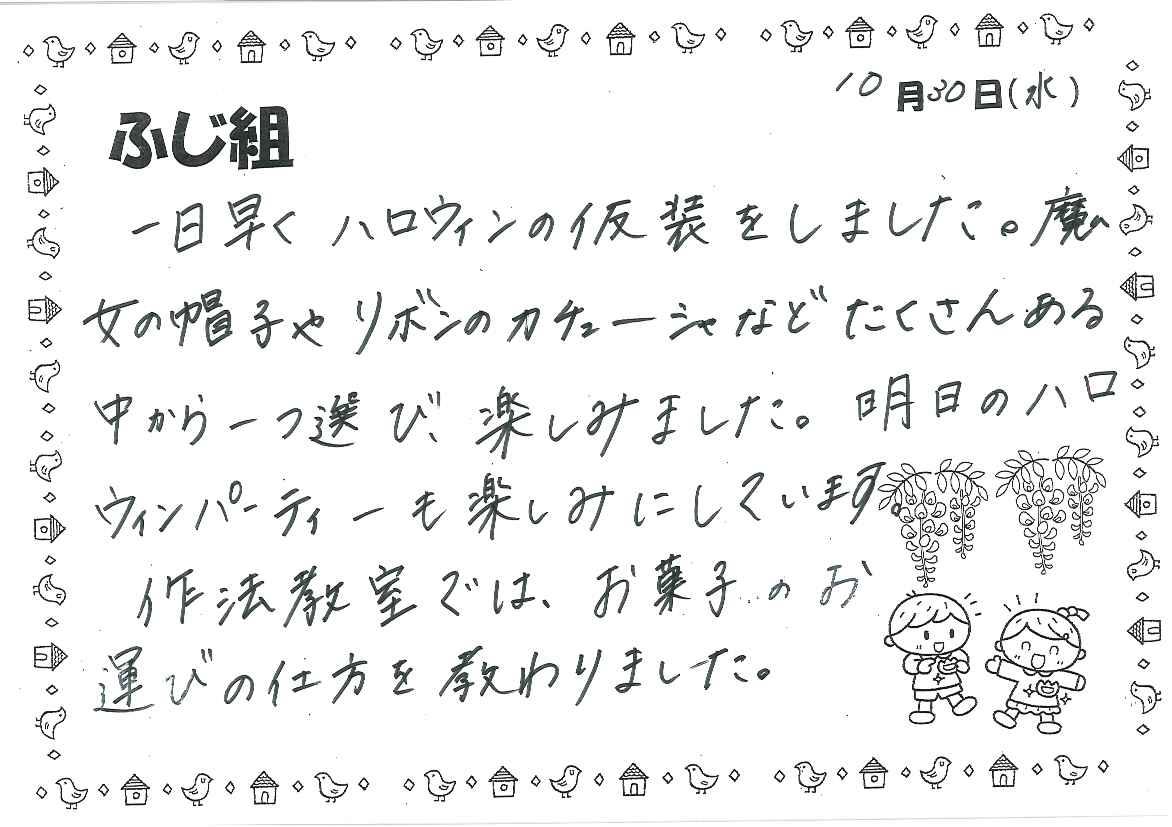 10月30日(水)
ふじ組
一日早くハロウィンの仮装をしました。魔
女の帽子やリボンのカチューシャなどたくさんある
中から一つ選び、楽しみました。明日のハロ
ウィンパーティーも楽しみにしています。
作法教室では、お菓子のお
運びの仕方を教わりました。